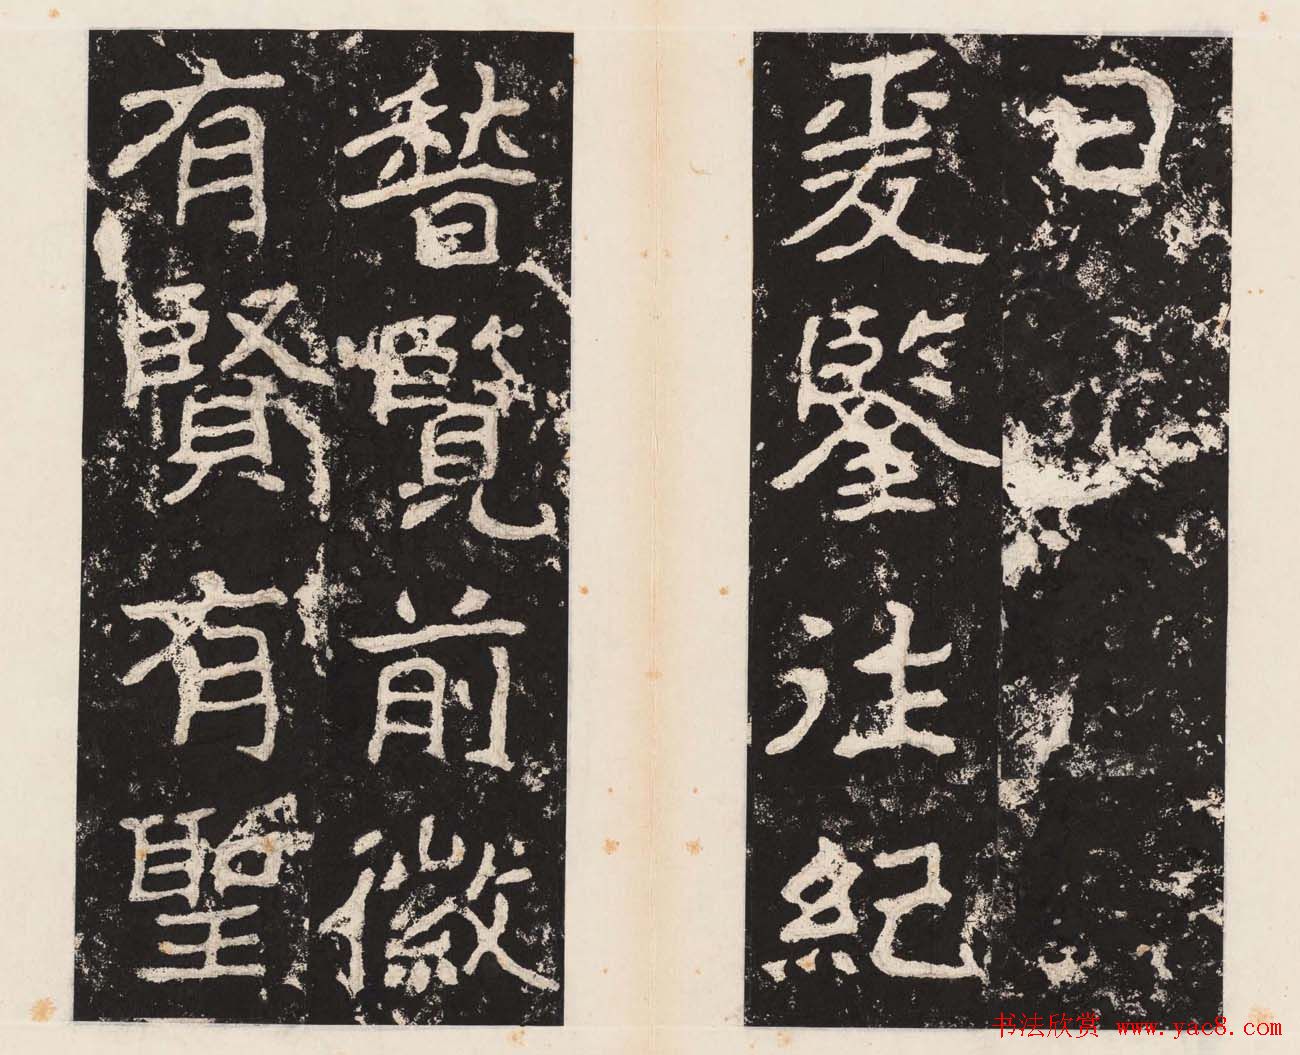 曰
爰鑒往紀
稽覽前徽
有賢有聖
书法欣赏 www.yac8.com